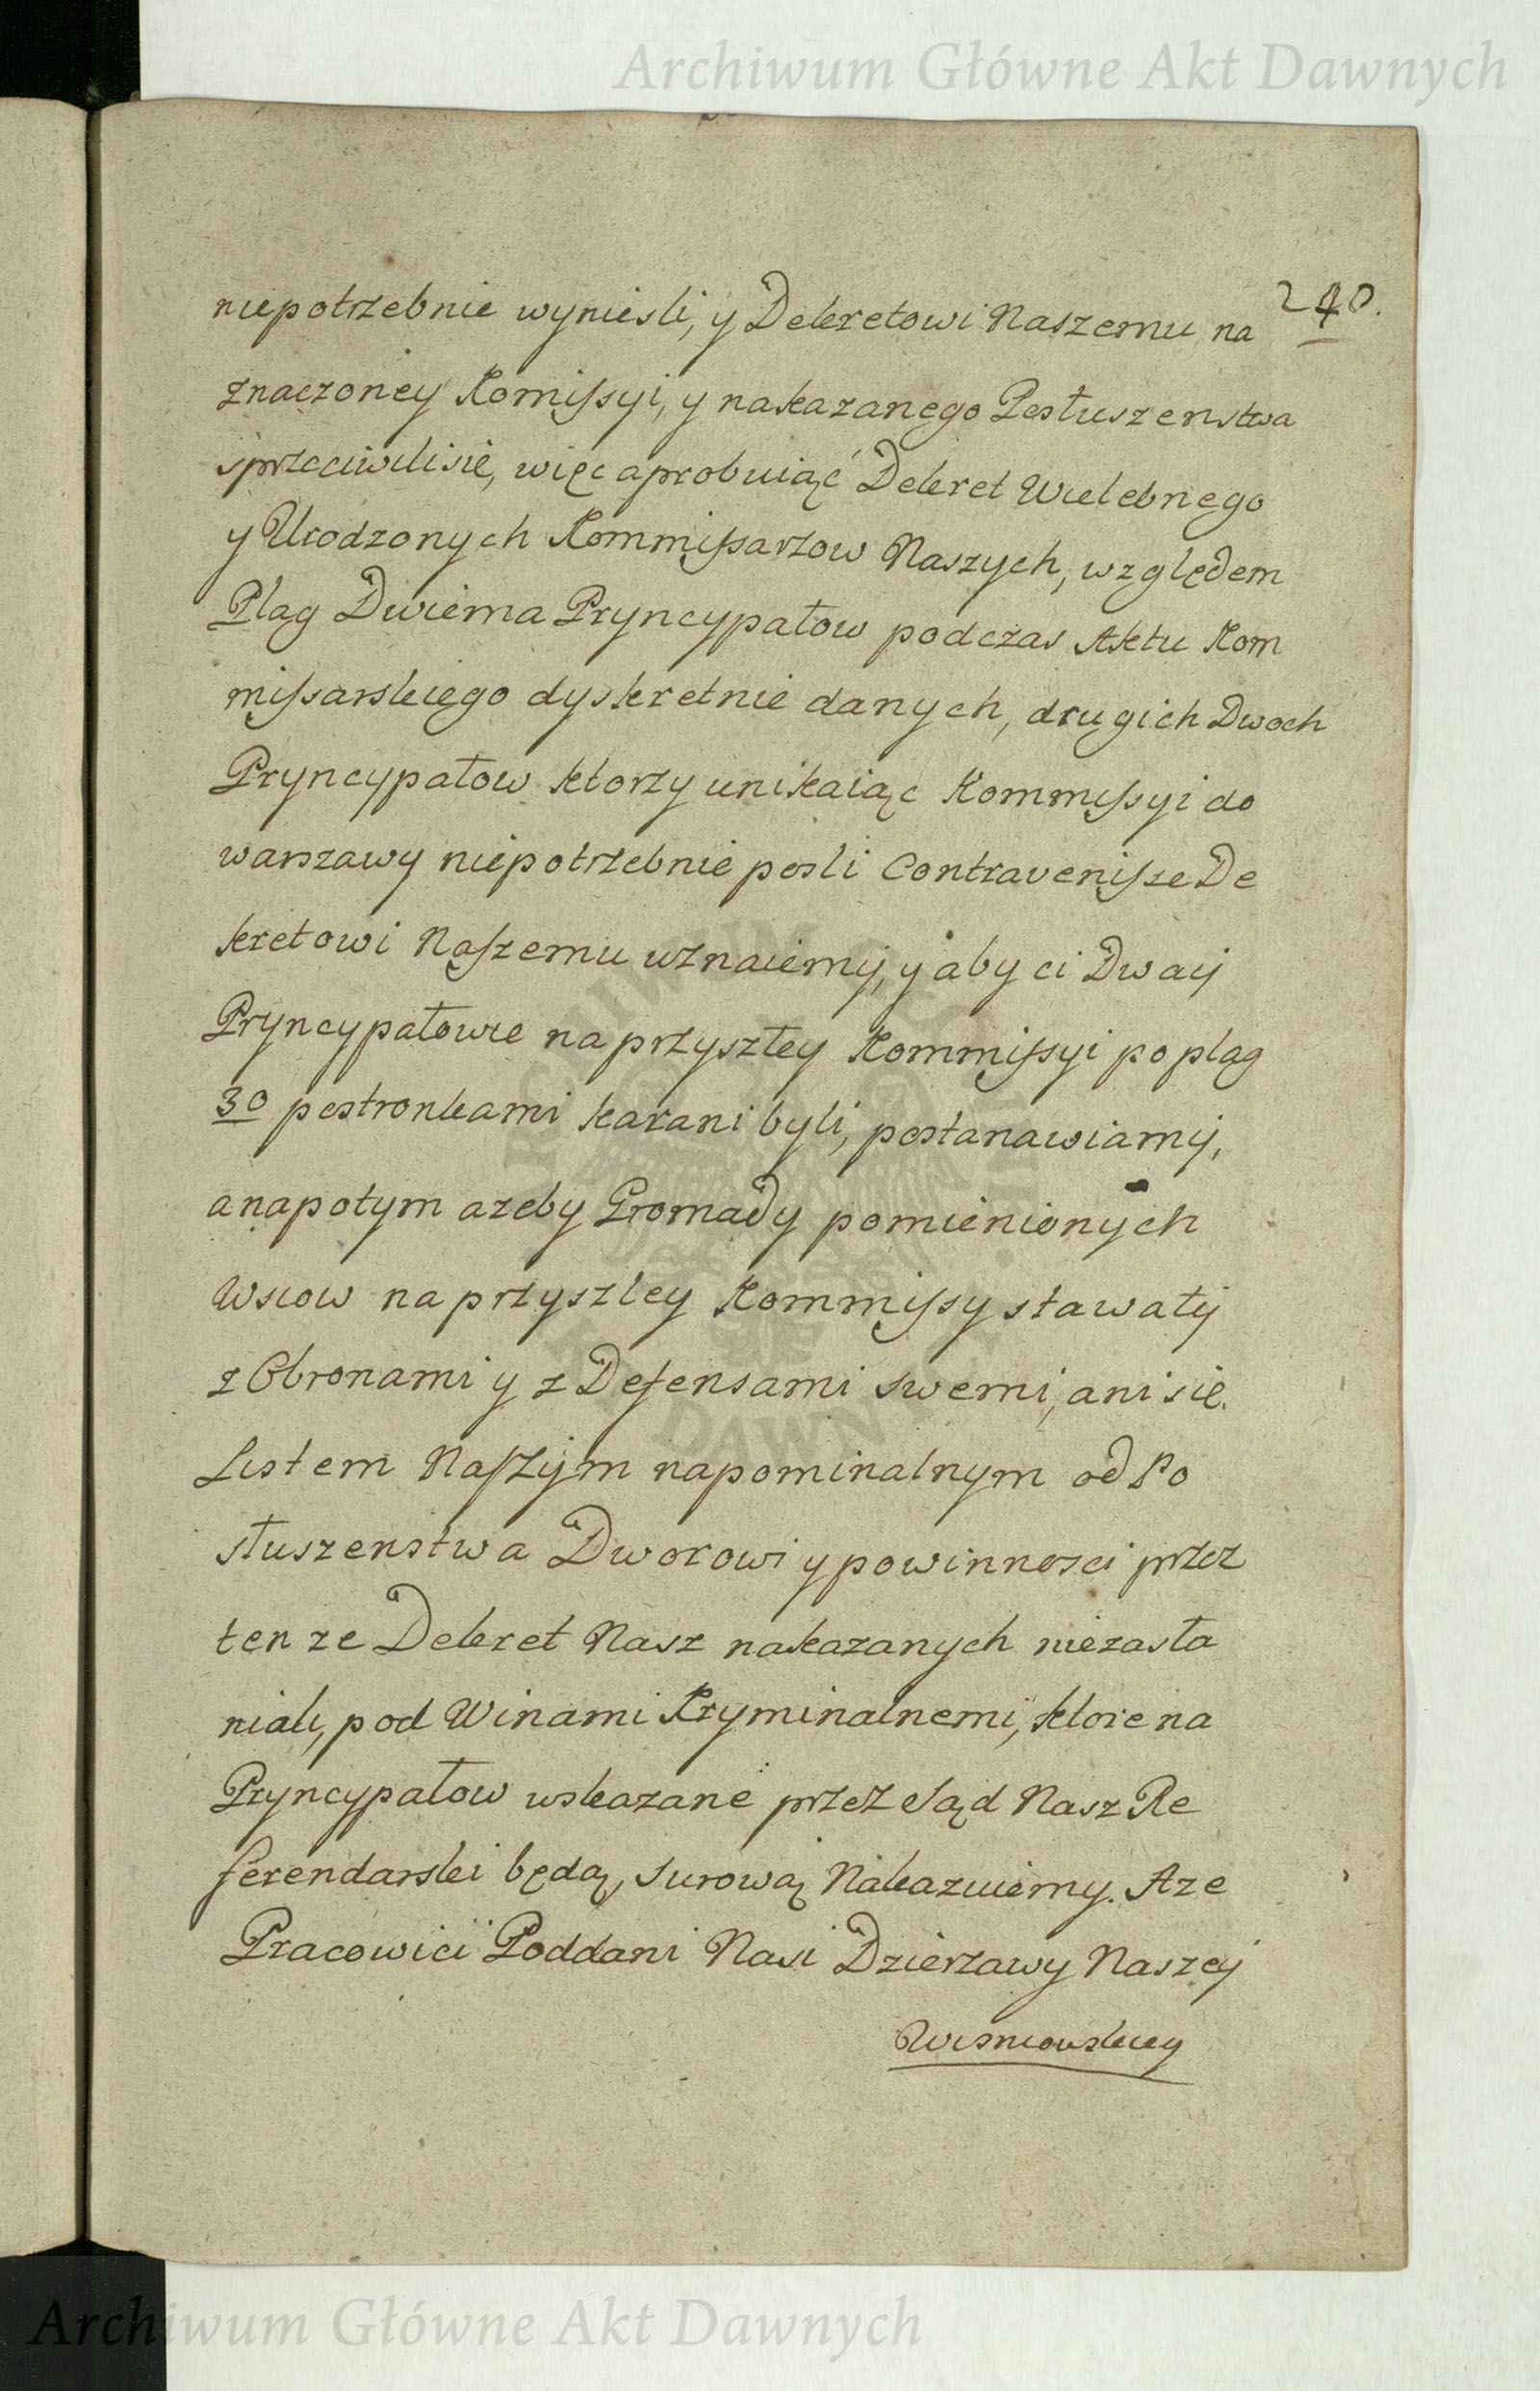 Archiwum Główne Akt Dawnych
240.
niepotrzebnie wyniesli, y Dekretowi Naszemu na
znaczoney Komissyi, y nakazanego Posłuszenstwa
sprzeciwilisie, więc aprobuiąc Dekret Wielebnego
y Urodzonych Kommissarzow Naszych, względem
Plag Dwiema Pryncypałow podczas Aktu Kom
missarskiego dyskretnie danych, drugich Dwoch
Pryncypałow ktorzy unikaiąc Kommissyi do
warszawy niepotrzebnie posli Contravenisse De
kretowi Naszemu uznaiemy, y aby ci Dwaij
Pryncypałowie na przyszłey Kommissyi po plag
30 postronkami karani byli, postanawiamy,
a napotym azeby Gromady pomienionych
Wsiow na przyszley Kommissy stawały
z Obronami y z Defensami swemi, ani sie
Listem Naszym napominalnym od Po
słuszenstwa Dworowi y powinnosci przez
ten ze Dekret Nasz nakazanych niezasła
niali, pod Winami Kryminalnemi, ktore na
Pryncypałow wskazane przez Sąd Nasz Re
ferendarski będą, surowaj Nakazuiemy. Aze
Pracowici Poddani Nasi Dzierzawy Naszej
Wisniowskiey
Archiwum Główne Akt Dawnych